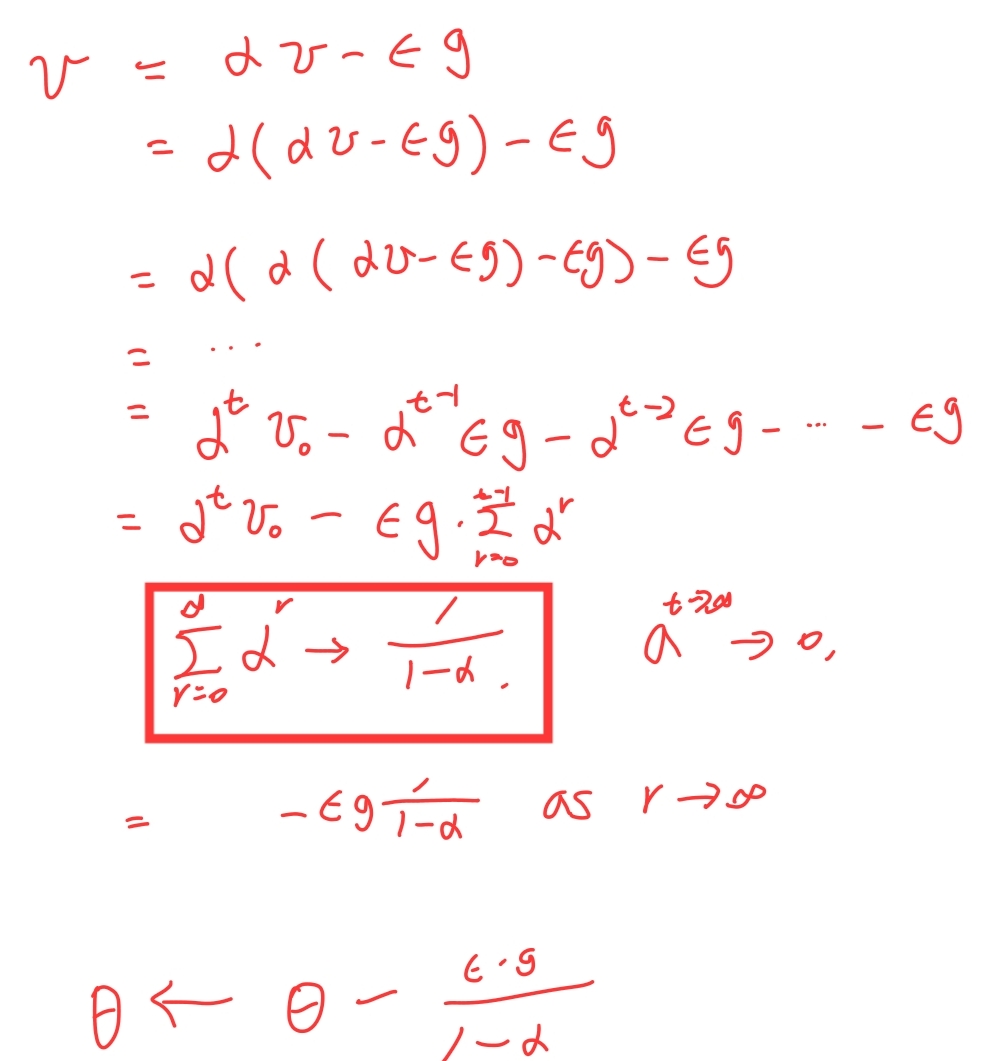 v = αv - ϵg
= α(αv - ϵg) - ϵg
= α(α(αv - ϵg) - ϵg) - ϵg
= ...
= α^t v₀ - α^{t-1} ϵg - α^{t-2} ϵg - ... - ϵg
= α^t v₀ - ϵg · ∑_{r=0}^{t-1} α^r
∑_{r=0}^{∞} α^r → 1/(1-α). a^{t→∞} → 0,
= -ϵg 1/(1-α) as r → ∞
θ ← θ - ϵ·g/(1-α)